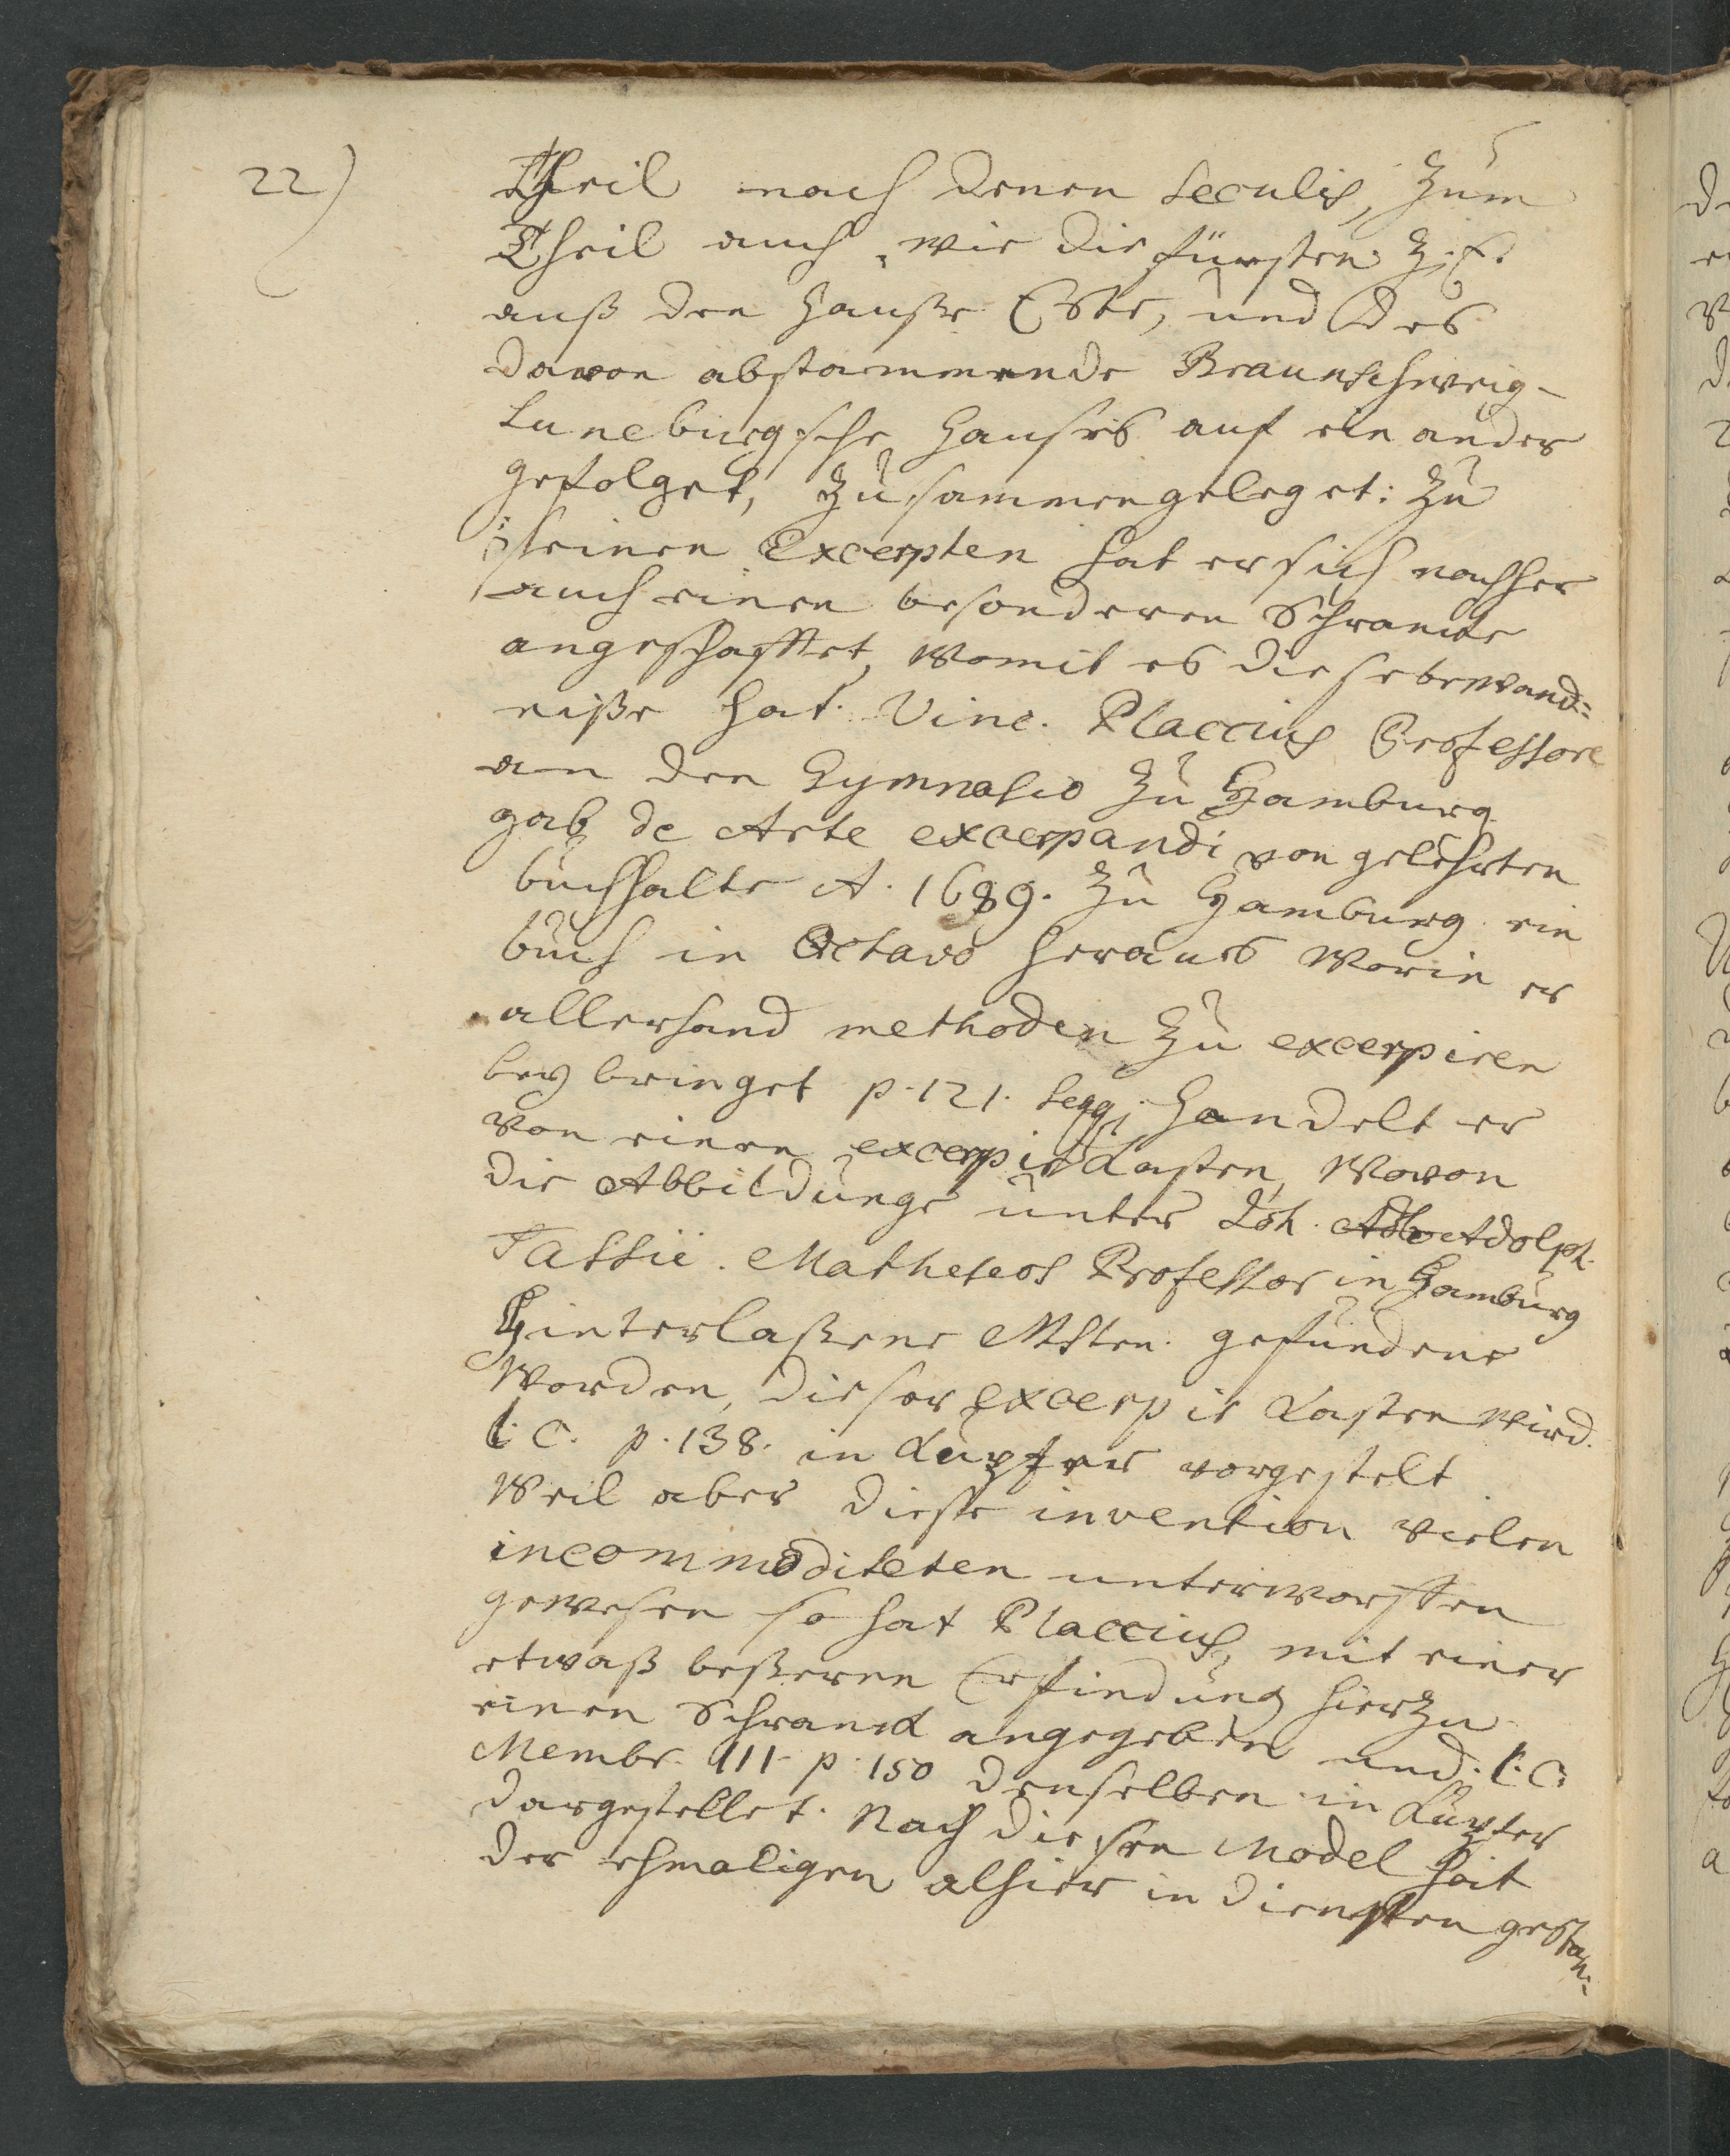 22)
Theil nach denen Seculis, zum
Theil auch, wie die fürsten z. E.
auß den Hauße Este, und des
davon abstammende Braunschweig-
Luneburgsche Hauses auf ein ander
gefolget, zusammengeleget: Zu
seinen Excerpten hat er sich nachher
auch einen besonderen Schrancke
angeschaffet, womit es diese bewand=
niße hat. Vinc. Placcius Professore
an den Gymnasio zu Hamburg
gab de Arte excerpandi von gelehrten
buchhalte A. 1689. zu Hamburg ein
buch in Octavo heraus worin er
allerhand methoden zu excerpiren
bey bringet p. 121. seqq. handelt er
von einen excerpir Kasten, wovon
die Abbildunge unter Joh. Adolph.
Tassii. Matheseos Professor in Hamburg
Hinterlaßene MSten. gefundene
worden, dieser excerpir Kasten wird.
l. c. p. 138. in Kupfer vorgestelt
Weil aber diese invention vielen
incommoditeten unterworffen
gewesen so hat Placcius, mit einer
etwaß beßeren Erfindung hierzu
einen Schranck angegeben und. l. c.
Membr. III. p. 150 denselben in Kupfer
dargestellet. Nach diesen Model hait
der ehmaligen alhier in diensten gestan: